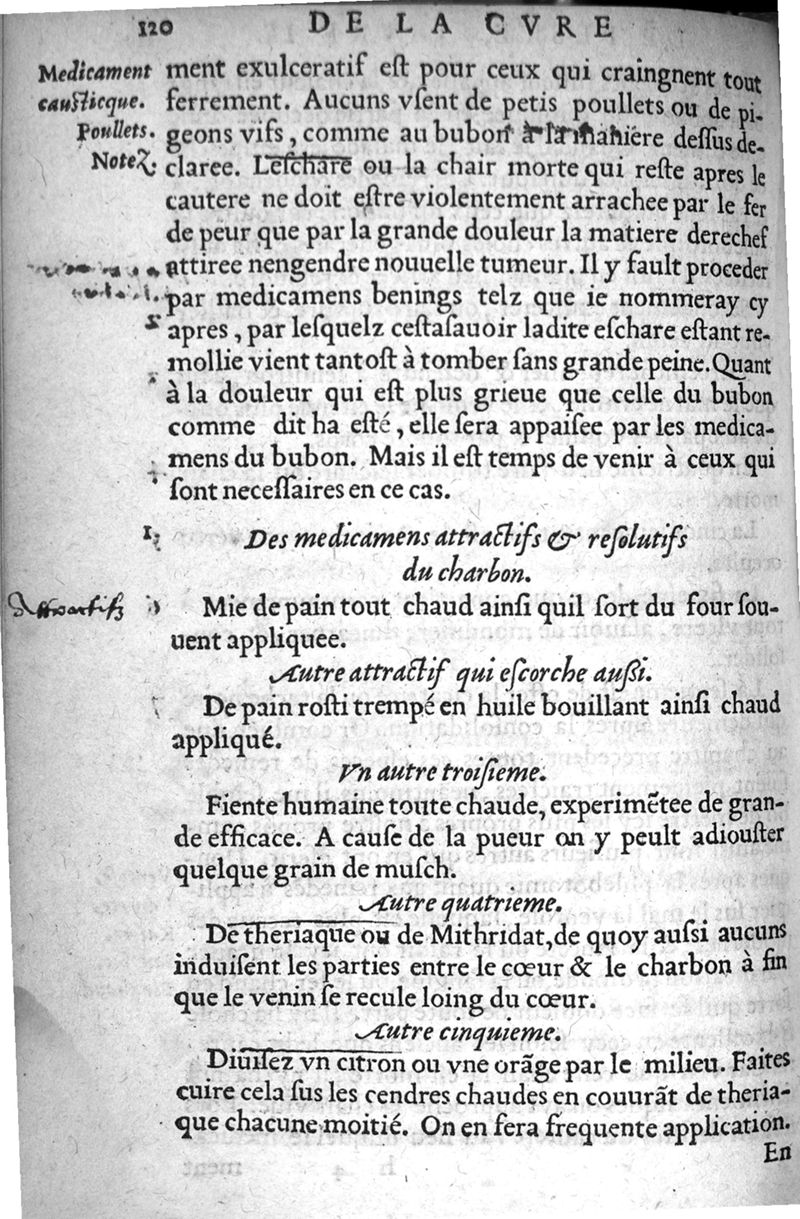 120 DE LA CVRE
Medicament
causticque.
Poullets.
Notez.
ment exulceratif est pour ceux qui craingnent tout
ferrement. Aucuns vſent de petis poullets ou de pi-
geons vifs, comme au bubon à la maniere deſſus de-
claree. Leſchare ou la chair morte qui reſte apres le
cautere ne doit eſtre violentement arrachee par le fer
de peur que par la grande douleur la matiere derechef
attiree nengendre nouuelle tumeur. Il y fault proceder
par medicamens benings telz que ie nommeray cy
apres, par leſquelz ceſtaſauoir ladite eſchare eſtant re-
mollie vient tantoſt à tomber ſans grande peine. Quant
à la douleur qui eſt plus grieue que celle du bubon
comme dit ha eſté, elle ſera appaiſee par les medica-
mens du bubon. Mais il eſt temps de venir à ceux qui
ſont neceſſaires en ce cas.
Des medicamens attractifs & reſolutifs
du charbon.
Attractifz
Mie de pain tout chaud ainſi quil ſort du four ſou-
uent appliquee.
Autre attractif qui eſcorche auſſi.
De pain roſti trempé en huile bouillant ainſi chaud
appliqué.
Vn autre troiſieme.
Fiente humaine toute chaude, experimẽtee de gran-
de efficace. A cauſe de la pueur on y peult adiouſter
quelque grain de muſch.
Autre quatrieme.
De theriaque ou de Mithridat, de quoy auſſi aucuns
induiſent les parties entre le cœur & le charbon à fin
que le venin ſe recule loing du cœur.
Autre cinquieme.
Diuiſez vn citron ou vne orãge par le milieu. Faites
cuire cela ſus les cendres chaudes en couurãt de theria-
que chacune moitié. On en ſera frequente application.
En